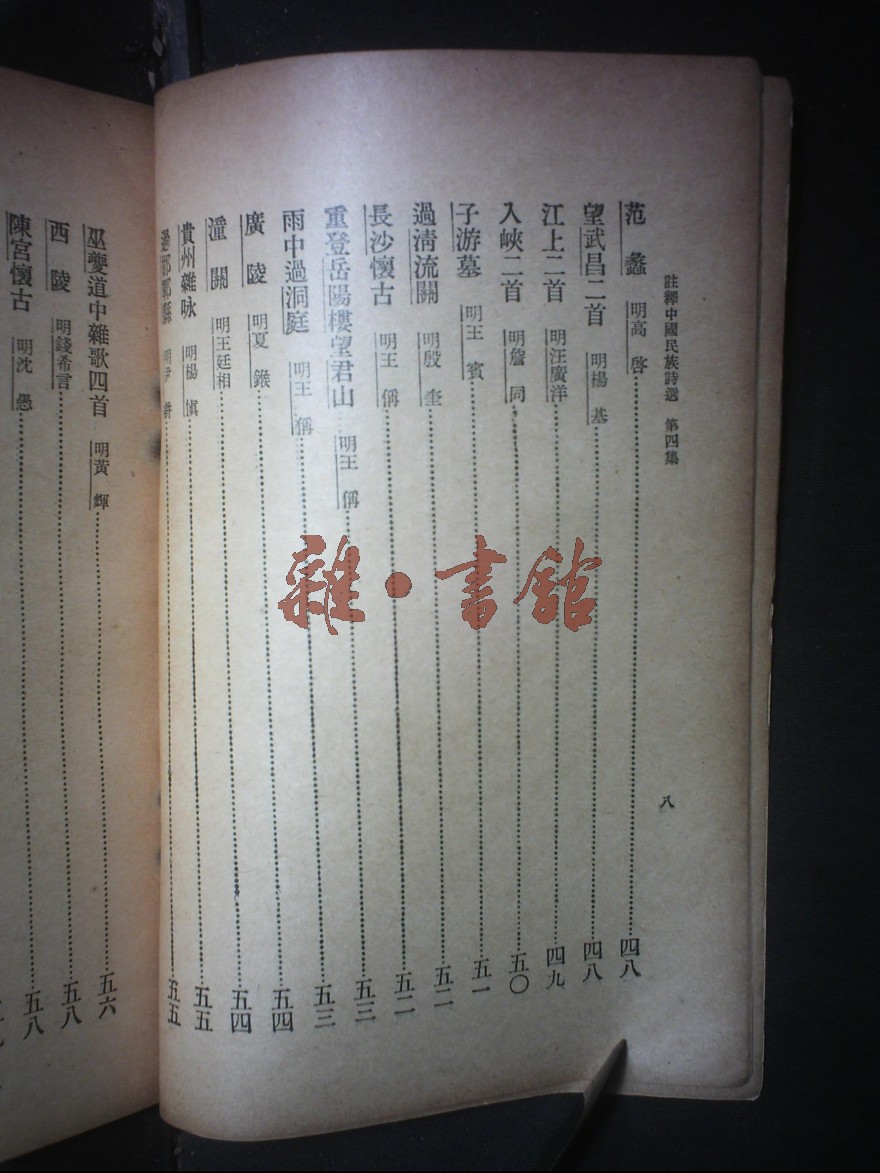 註釋中國民族詩選 第四集
八
范蠡 明高啓 四八
望武昌二首 明楊基 四八
江上二首 明汪廣洋 四九
入峽二首 明詹同 五〇
子游墓 明王賓 五一
過清流關 明殷奎 五二
長沙懷古 明王偁 五二
重登岳陽樓望君山 明王偁 五三
雨中過洞庭 明王偁 五三
廣陵 明夏鍭 五四
潼關 明王廷相 五四
貴州雜咏 明楊愼 五五
過邯鄲縣 明尹耕 五五
巫夔道中雜歌四首 明黃輝 五六
西陵 明錢希言 五八
陳宮懷古 明沈愚 五八
雜·書館